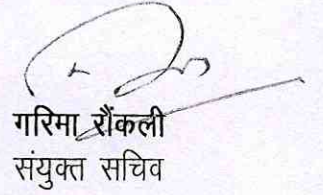 गरिमा रौंकली
संयुक्त सचिव